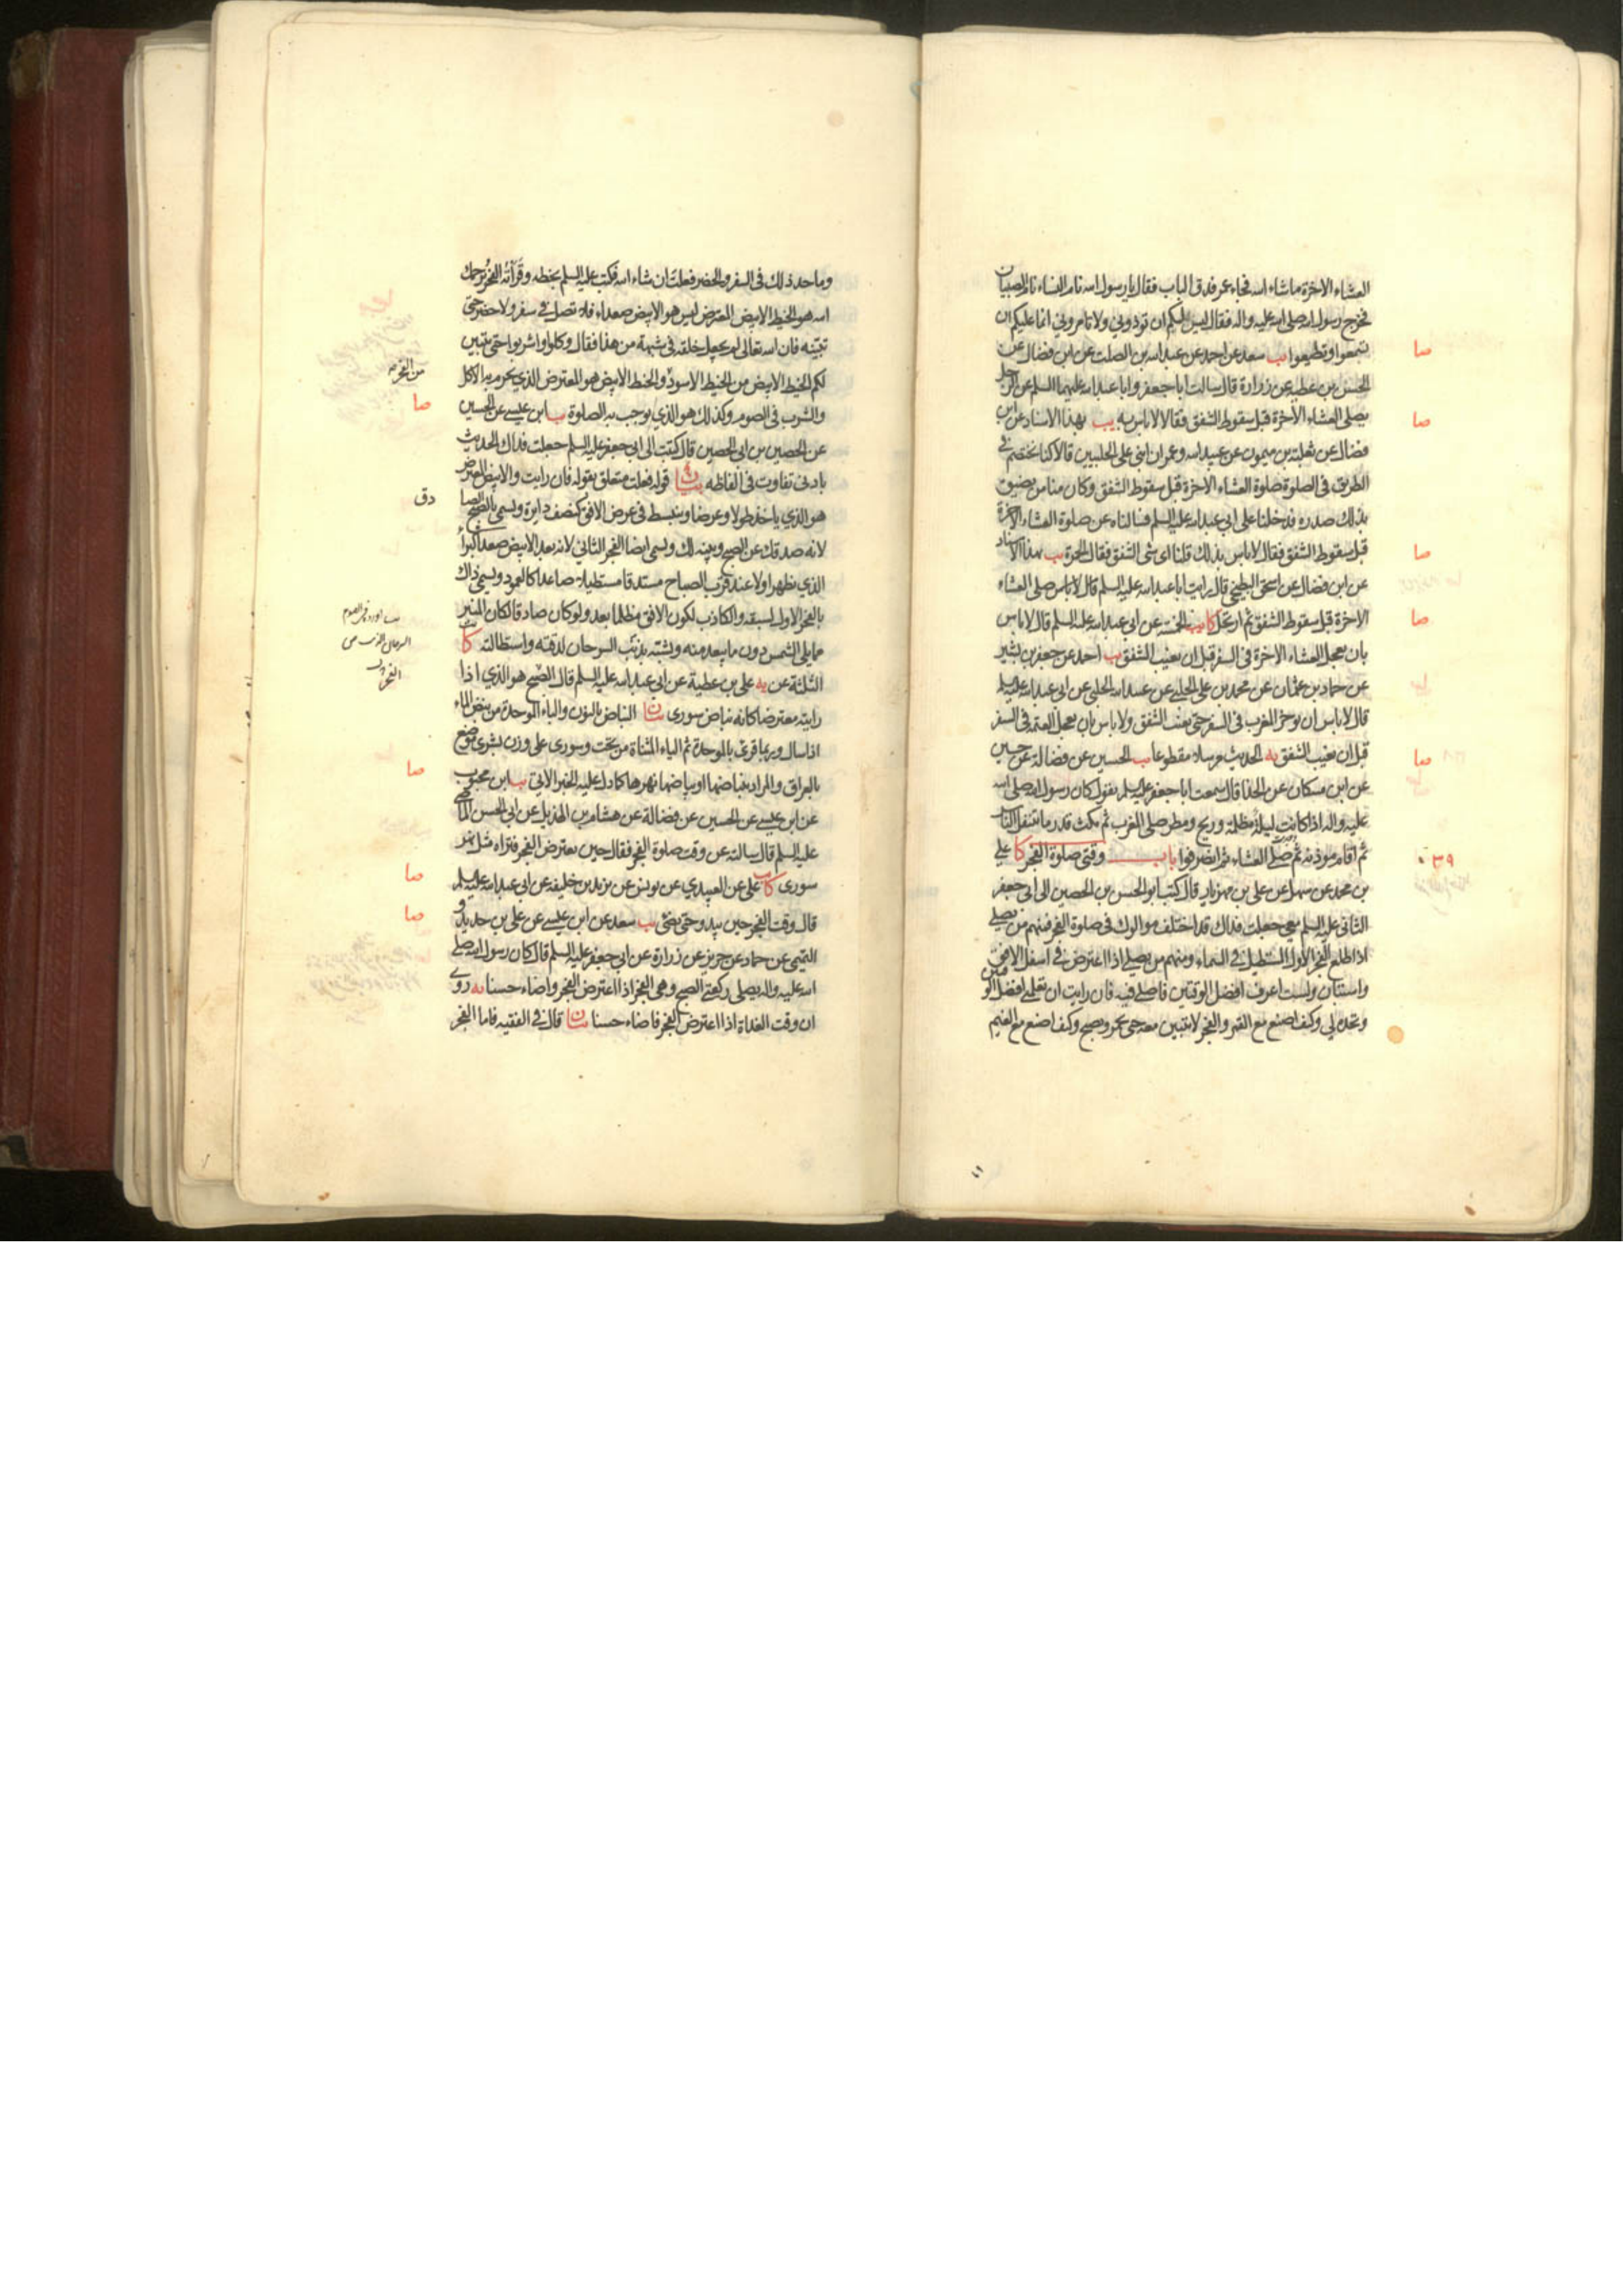 العشاء الاخرة ما شاء الله فجاء عمر فدق الباب فقال يا رسول الله نام النساء نام الصبيان
فخرج رسول الله صلى الله عليه واله فقال ليس لكم ان توذوني ولا تامروني انما عليكم ان
تسمعوا وتطيعوا يب سعد عن احمد عن عبد الله بن الصلت عن ابن فضال عن
الحسن بن عطيه عن زرارة قال سالت ابا جعفر وابا عبد الله عليهما السلم عن الرجل
يصلى العشاء الاخرة قبل سقوط الشفق فقالا لا باس به يب بهذا الاسناد عن ابن
فضال عن ثعلبة بن ميمون عن عبيد الله وعمران ابني على الحلبيين قالا كنا نختصم في
الطريق فى الصلوة صلوة العشاء الاخرة قبل سقوط الشفق وكان منا من يضيق
بذلك صدره فدخلنا على ابي عبد الله عليه السلم فسالناه عن صلوة العشاء الاخرة
قبل سقوط الشفق فقال لا باس بذلك قلنا اى شى الشفق فقال الحمرة يب بهذا الاسناد
عن ابن فضال عن اسحق البطيخى قال رايت ابا عبد الله عليه السلم قال لا باس صلى العشاء
الاخرة قبل سقوط الشفق ثم ارتحل كا يب الخمسة عن ابى عبد الله عليه السلم قال لا باس
بان يعجل العشاء الاخرة فى السفر قبل ان يغيب الشفق يب احمد عن جعفر بن بشير
عن حماد بن عثمان عن محمد بن على الحلبى عن عبيد الله الحلبى عن ابى عبد الله عليه السلم
قال لا باس ان يوخر المغرب فى السفر حتى يغيب الشفق ولا باس بان يعجل العتمه فى السفر
قبل ان يغيب الشفق يه الحديث مرسلا مقطوعا يب الحسين عن فضالة عن حسين
عن ابن مسكان عن الحذا قال سمعت ابا جعفر عليه السلم يقول كان رسول الله صلى الله
عليه واله اذا كانت ليلة مظلمة وريح ومطر صلى المغرب ثم مكث قدر ما يتنفل الناس
ثم اقام موذنه ثم صلى العشاء ثم انصرفوا باب وقتى صلوة الفجر كا على
بن محمد عن سهل عن على بن مهزيار قال كتب ابو الحسن بن الحصين الى ابى جعفر
الثانى عليه السلم معى جعلت فداك قد اختلف موالوك فى صلوة الفجر فمنهم من يصلى
اذا طلع الفجر الاول المستطيل فى السماء ومنهم من يصلى اذا اعترض فى اسفل الافق
واستبان ولست اعرف افضل الوقتين فاصلى فيه فان رايت ان تعلمنى افضل الوقتين
وتحده لى وكيف اصنع مع القمر والفجر لا يتبين معه حتى يحمر ويصبح وكيف اصنع مع الغيم
صا
صا
صا
صا
صا
٣٩
وما حد ذلك فى السفر والحضر فعلت ان شاء الله فكتب عليه السلم بخطه وقراته الفجر يرحمك
الله هو الخيط الابيض المعترض ليس هو الابيض صعداء فلا تصل فى سفر ولا حضر حتى
تتبينه فان الله تعالى لم يجعل خلقه فى شبهة من هذا فقال وكلوا واشربوا حتى يتبين
لكم الخيط الابيض من الخيط الاسود والخيط الابيض هو المعترض الذى يحرم به الاكل
والشرب فى الصوم وكذلك هو الذى يوجب به الصلوة يب ابن عيسى عن الحسين
عن الحصين بن ابى الحصين قال كتبت الى ابى جعفر عليه السلم جعلت فداك الحديث
بادنى تفاوت فى الفاظه بيان قوله فعلت متعلق بقوله فان رايت والابيض المعترض
هو الذى ياخذ طولا وعرضا وينبسط فى عرض الافق كنصف دايرة ويسمى بالصبح الصا
دق
لانه صدقك عن الصبح وبينه لك ويسمى ايضا الفجر الثانى لانه بعد الابيض صعدا
الذى يظهر اولا عند قرب الصباح مستدقا مستطيلا صاعدا كالعمود ويسمى ذاك
بالفجر الاول لسبقه والكاذب لكون الافق مظلما بعد ولو كان صادقا لكان المنير
مما يلى الشمس دون ما يبعد منه ويشبه بذنب السرحان لدقته واستطالته كا
الثلثة عن يه على بن عطية عن ابى عبد الله عليه السلم قال الصبح هو الذى اذا
رايته معترضا كانه نباض سورى بيان النباض بالنون والباء الموحدة من نبض الماء
اذا سال وربما قرئ بالموحدة ثم الياء المثناة من تحت وسورى على وزن بشرى موضع
بالعراق والمراد بنباضها او بياضها نهرها كما دل عليه الخبر الاتى يب ابن محبوب
عن ابن عيسى عن الحسين عن فضالة عن هشام بن الهذيل عن ابى الحسن الماضى
عليه السلم قال سالته عن وقت صلوة الفجر فقال حين يعترض الفجر فتراه مثل نهر
سورى كا يب على عن العبيدي عن يونس عن يزيد بن خليفه عن ابى عبد الله عليه السلم
قال وقت الفجر حين يبدو حتى يضئ يب سعد عن ابن عيسى عن على بن حديد و
التميمى عن حماد عن حريز عن زرارة عن ابى جعفر عليه السلم قال كان رسول الله صلى
الله عليه واله يصلى ركعتى الصبح وهى الفجر اذا اعترض الفجر واضاء حسنا يه روى
ان وقت الغداة اذا اعترض الفجر فاضاء حسنا بيان قال فى الفقيه فاما الفجر
من الفجر
صا
صا
صا
صا